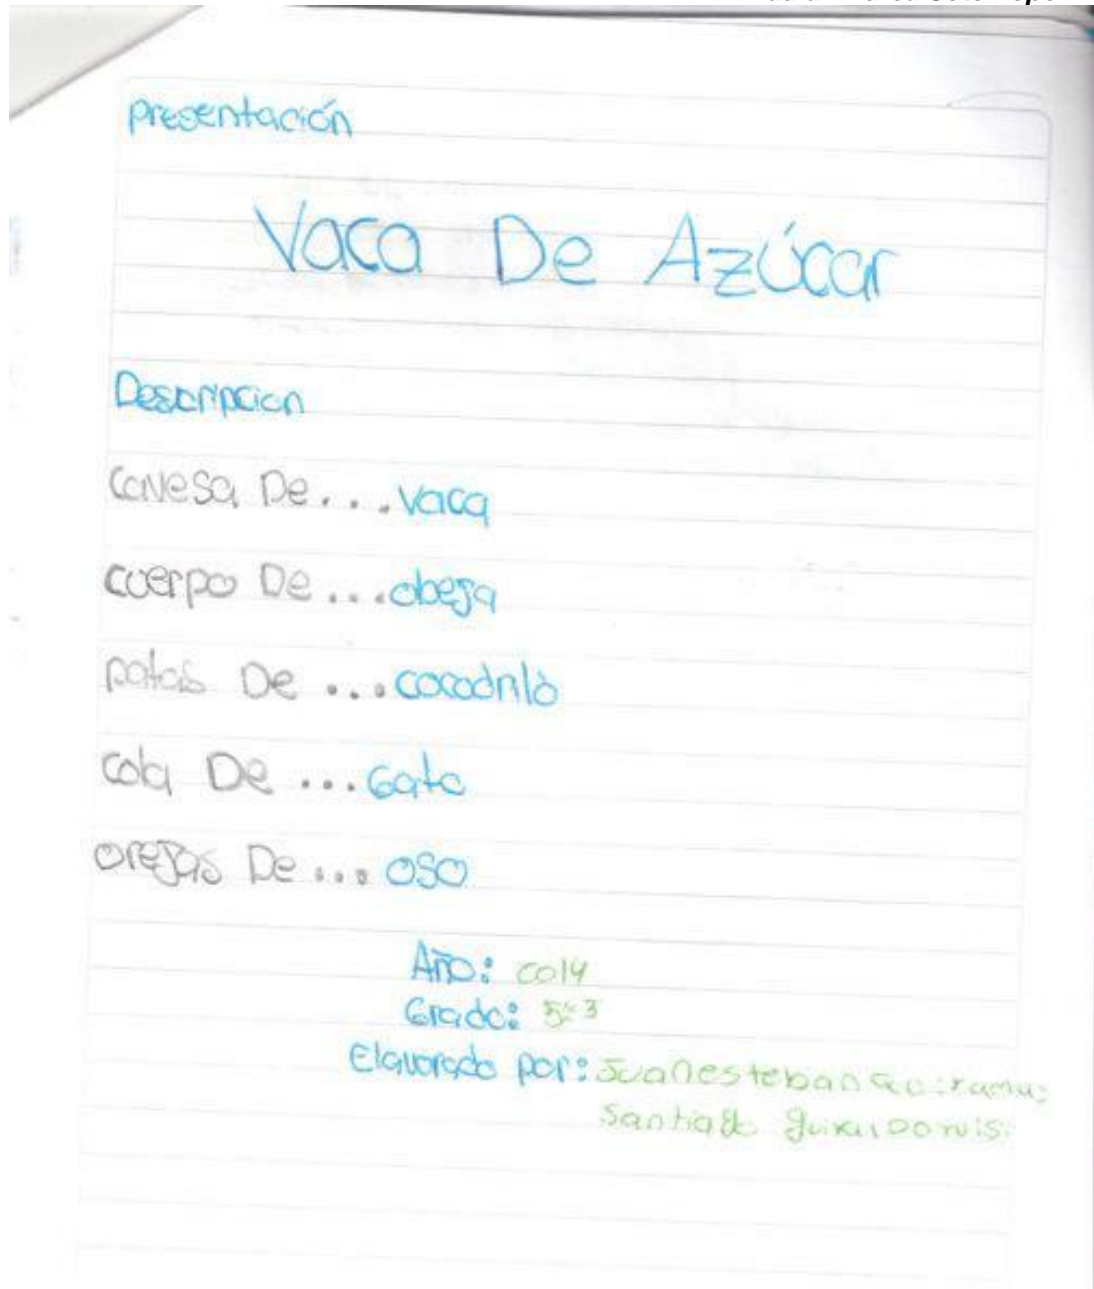 presentación
Vaca De Azúcar
Descripcion
Cavesa De....vaca
cuerpo De ...obeja
patas De ...cocodrilo
cola De ...Gato
orejas De... oso
Año: co14
Grado: 5°3
Elavorado por: Juan esteban
Santiago